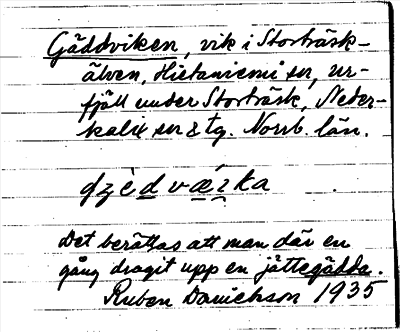 Gäddviken, vik i Storträsk-
älven, Hietaniemi sn, ur-
fjäll under Storträsk, Neder-
kalix sn & tg. Norrb. län.
det berättas att man där en
gång dragit upp en jättegädda.
Ruben Danielsson 1935